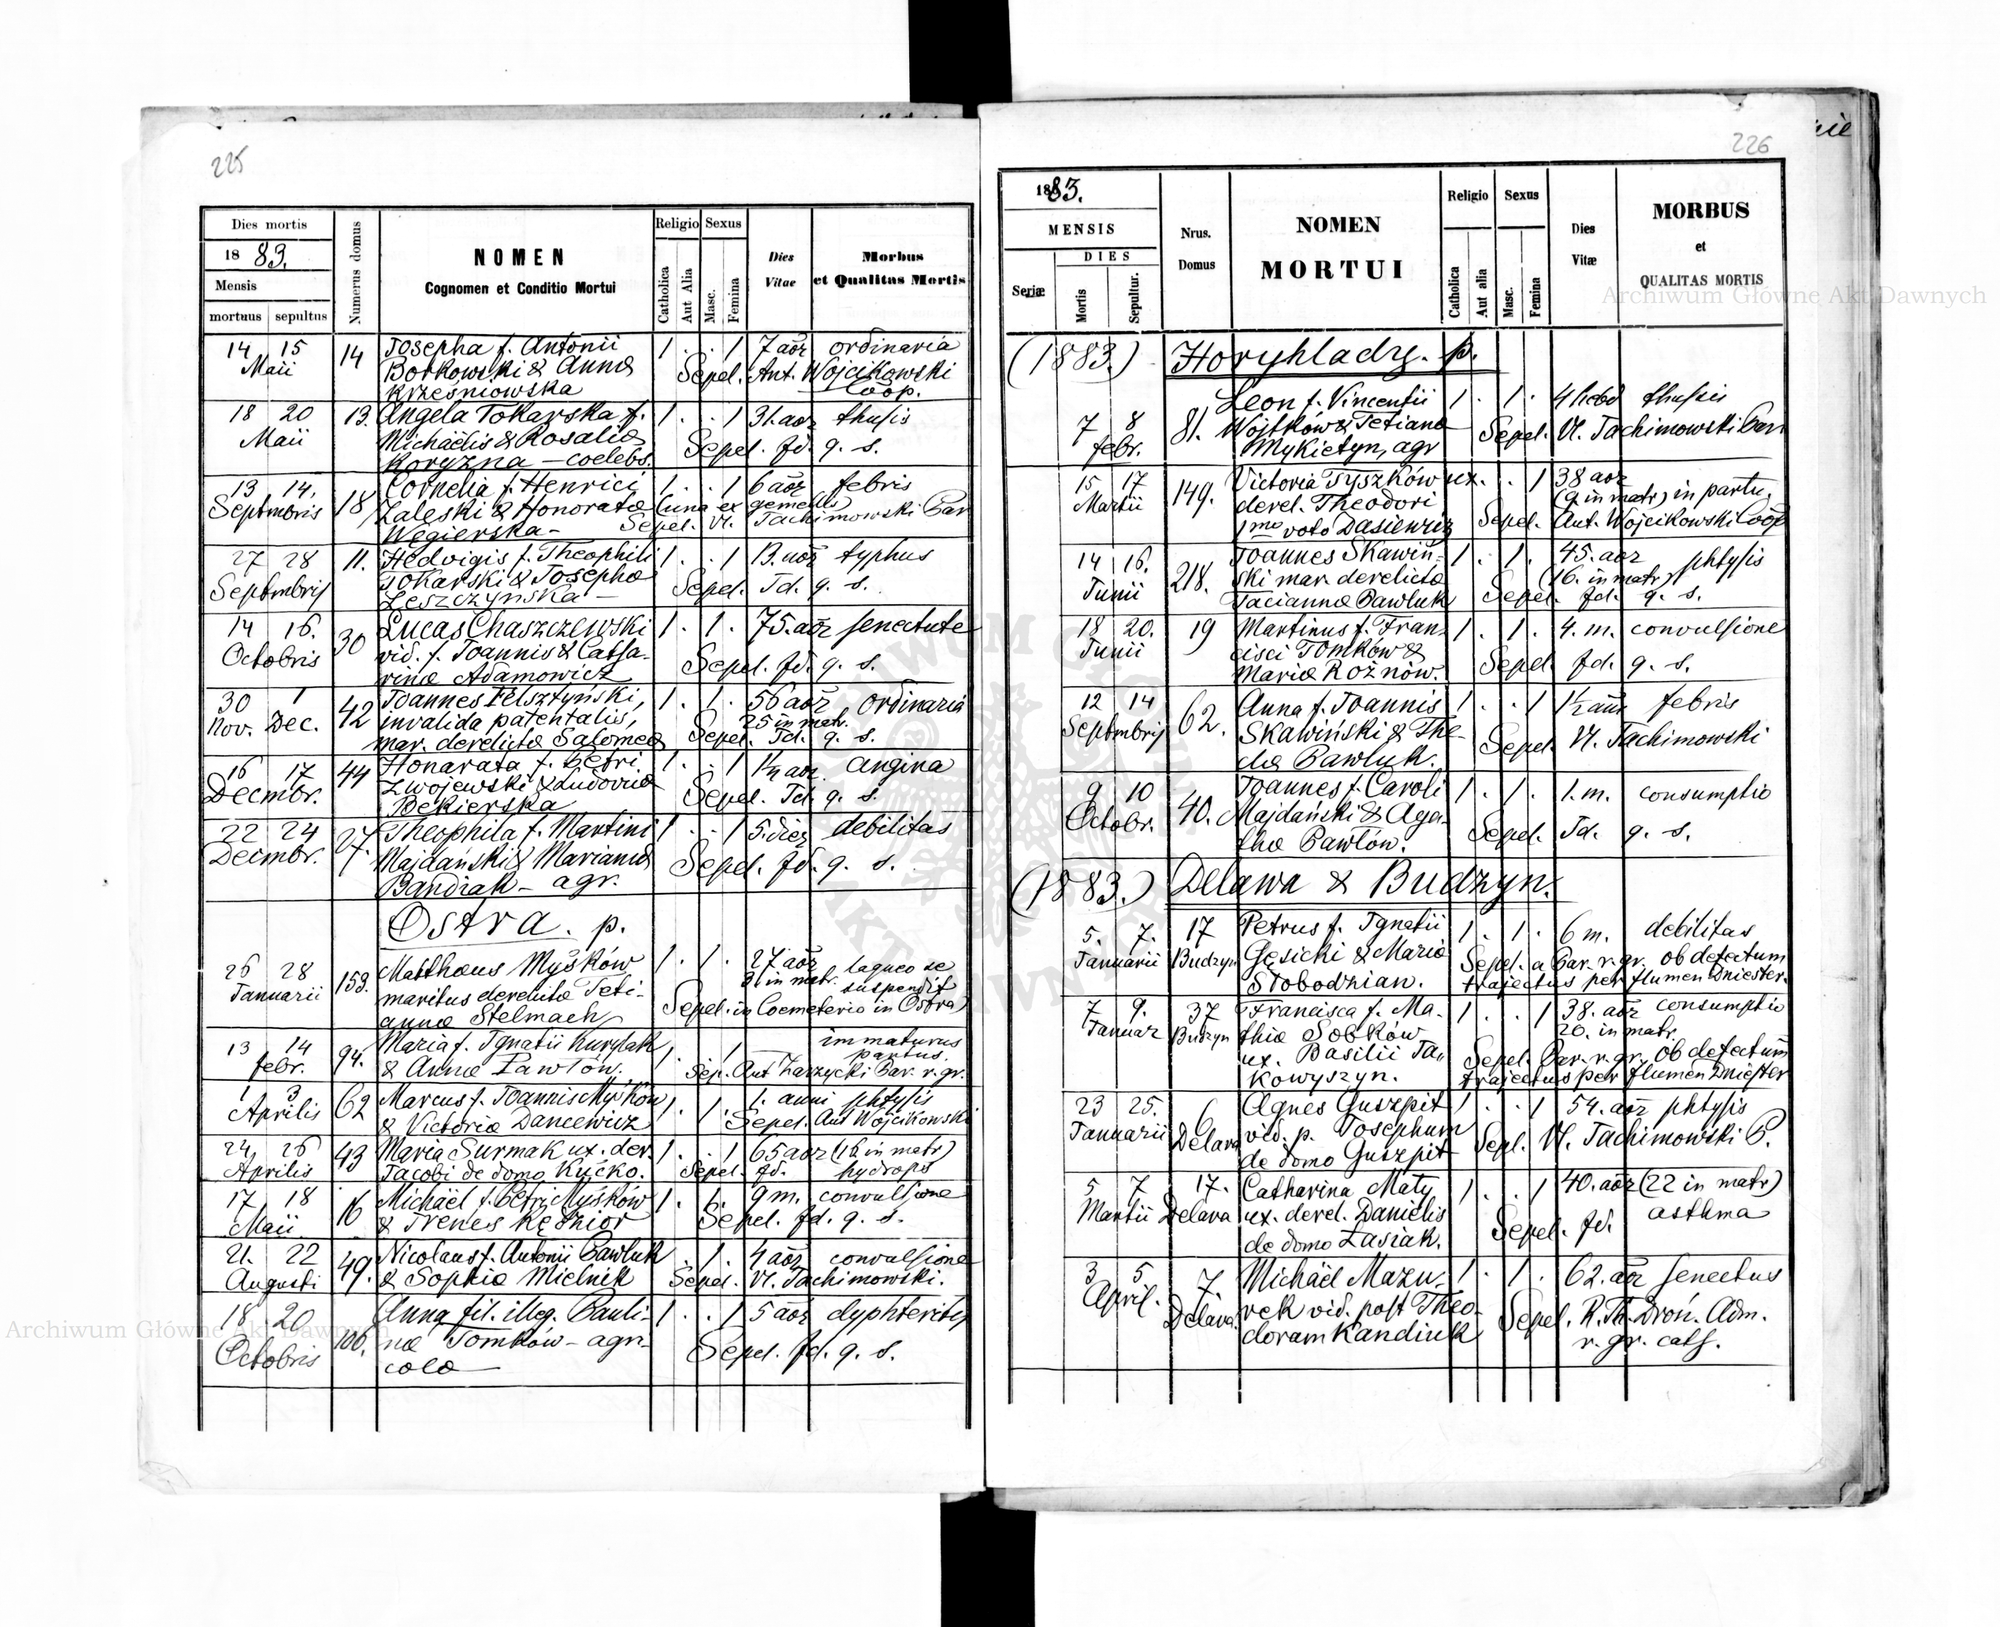 225
Dies mortis
1883.
Mensis
mortuus sepultus
Numerus domus
NOMEN
Cognomen et Conditio Mortui
Religio Sexus
Catholica
Aut Alia
Masc.
Femina
Dies
Vitae
Morbus
et Qualitas Mortis
14 15 14 Josepha f. Antonii 1 . . 1 7 aor ordinaria
Maii Borkowski & Anna Sepel. Ant. Wojcikowski
Krześniowska Coop.
18 20 13. Angela Tokarska f. 1 . . 1 31. aor thusis
Maii Michaëlis & Rosalia Sepel. fd. q. s.
Koryzna – coelebs.
13 14. 18 Cornelia f. Henrici 1 . . 1 6 aor febris
Septmbris Zaleski & Honorata (una ex gemellis)
Węgierska – Sepel. Vl. Jachimowski Par
27 28 11. Hedvigis f. Theophili 1 . . 1 13. aor typhus
Septmbris Tokarski & Josepha Sepel. Id. q. s.
Leszczyńska –
14 16. 30 Lucas Chaszczewski 1 . 1 . 75. aor senectute
Octobris vid. f. Joannis & Catha- Sepel. fd. q. s.
rina Adamowicz
30 1 42 Joannes Felsztyński, 1 . 1 . 56 aor ordinaria
Nov. Dec. invalida patentalis, 25 in matr.
mar. derelicta Salomea Sepel. Id. q. s.
16 17 44 Honarata f. Petri 1 . . 1 1½ aor. angina
Decmbr. Zwojewski & Ludovica Sepel. Id. q. s.
Bekierska
22 24 27. Theophila f. Martini 1 . . 1 5. dier debilitas
Decmbr. Majdański & Marianna Sepel. fd. q. s.
Bandrak – agr.
Ostra. p.
26 28 153. Matthaeus Myśków 1 . 1 . 27 aor laqueo se
Januarii maritus derelicta Teti- 3 in matr. suspendit
anna Stelmach Sepel. in Coemeterio in Ostra)
13 14 94. Maria f. Ignatii Kurylak 1. 1 immaturus
febr. & Anna Pawlów. partus.
Sep. Ant Zarzycki Par. r. gr.
1 3 62 Marcus f. Joannis Myśków 1. 1. 1. anni phtysis
Aprilis & Victoria Dancewicz Sepel. Ant Wojcikowski
24 26 43 Maria Surmak ux. der. 1. . 1 65 aor (16 in matr)
Aprilis Jacobi de domo Kyćko. Sepel. fd. hydrops
17 18 16 Michäel f. Petri Myśków 1. 1. 9 m. convulsione
Maii & Irenes Kędzior Sepel. fd. q. s.
21. 22 49. Nicolaus f. Antonii Pawluk . 1 . 4 aor convulsione
Augusti & Sophia Mielnik Sepel. Vl. Jachimowski.
18 20 106. Anna fil. illeg. Pauli- 1 . . 1 5 aor dyphteritis
Octobris na Tomków – agri- Sepel. fd. q. s.
cola
226
1883.
MENSIS
DIES
Seriæ
Mortis
Sepultur.
Nrus.
Domus
NOMEN
MORTUI
Religio Sexus
Catholica
Aut alia
Masc.
Femina
Dies
Vitæ
MORBUS
et
QUALITAS MORTIS
(1883.) Horyhlady. p.
7 8 81. Leon f. Vincentii 1 . 1 . 4 hebd thusis
febr. Wojtków & Tetiana Sepel. Vl. Jachimowski Par
Mykietyn, agr
15 17 149. Victoria Tyszków ux. . 1 38 aor
Martii derel. Theodori (9 in matr) in partu.
1mo voto Dasiewicz Sepel. Ant. Wojcikowski Coop
14 16. 218. Joannes Skawiń- 1 . 1 . 45. aor phtysis
Junii ski mar. derelicta (16. in matr)
Tacianna Pawluk Sepel. fd. q. s.
18 20. 19 Martinus f. Fran- 1 . 1 . 4. m. convulsione
Junii cisci Tomków & Sepel. fd. q. s.
Maria Rożnów.
12 14 62. Anna f. Joannis 1 . . 1 1½ ann febris
Septmbris Skawiński & The- Sepel Vl. Jachimowski
cla Pawluk.
9 10 40. Joannes f. Caroli 1 . 1 . 1. m. consumptio
Octobr. Majdański & Aga- Sepel. Id. q. s.
tha Pawlów.
(1883.) Delawa & Budzyn.
5. 7. 17 Petrus f. Ignatii 1 . 1 . 6 m. debilitas
Januarii Budzyn Gęsicki & Maria Sepel. a Par. r. gr. ob defectum
Słobodzian. trajectus per flumen Dniester.
7 9. 37 Francisca f. Ma- 1 . . 1 38. aor consumptio
Januar Budzyn thia Sobków 20. in matr.
ux. Basilii Ja- Sepel. Par. r. gr. ob defectum
kowyszyn. trajectus per flumen Dniester
23 25. 6 Agnes Guszpit 1 . . 1 54. aor phtysis
Januarii Delava vid. p. Josephum Sepl. Vl. Jachimowski P.
de domo Guszpit
5 7 17. Catharina Maty 1 . . 1 40. aor (22 in matr)
Martii Delava ux. derel. Danielis Sepel. fd. asthma
de domo Łasiak.
3 5 7 Michäel Mazu- 1 . 1 . 62. aor senectus
April. Delava. rek vid. post Theo- Sepel. R. Th. Droń. Adm.
doram Kandiuk r. gr. cath.
Archiwum Główne Akt Dawnych
Archiwum Główne Akt Dawnych
ARCHIWUM GŁÓWNE AKT DAWNYCH
nie